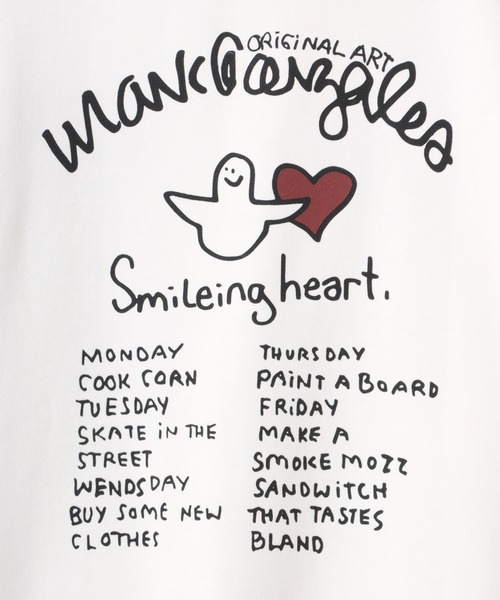 ORiGiNAL ART
MarkGonzales
Smileing heart.
MONDAY
COOK CORN
TUESDAY
SKATE iN THE
STREET
WENDSDAY
BUY SOME NEW
CLOTHES
THURSDAY
PAiNT A BOARD
FRiDAY
MAKE A
SMOKE MOZZ
SANDWiTCH
THAT TASTES
BLAND